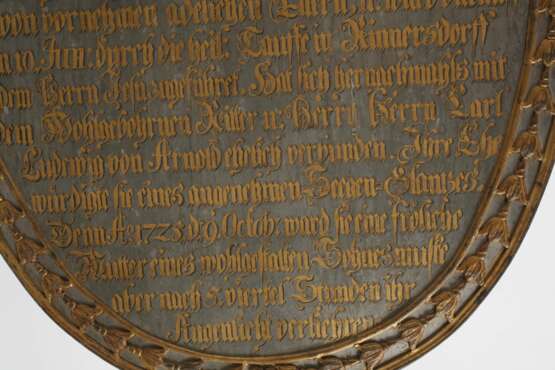 von vornehmen adelichen
n. 10 Jun: durch die heil. Tauffe in Kinnersdorff
dem Herrn Jesu zugeführet. Hat sich hernachmahls mit
dem Wohlgebohrnen Ritter u. Herrn Herrn Carl
Ludwig von Arnold ehelich verbunden. Ihre Ehe
würdigte sie eines angenehmen Seegen-Glantzes.
Denn Ao: 1725 d. 9. Octob. ward sie eine fröliche
Mutter eines wohlgestalten Sohnes muste
aber nach 5. viertel Stunden ihr
Augenlicht verliehren